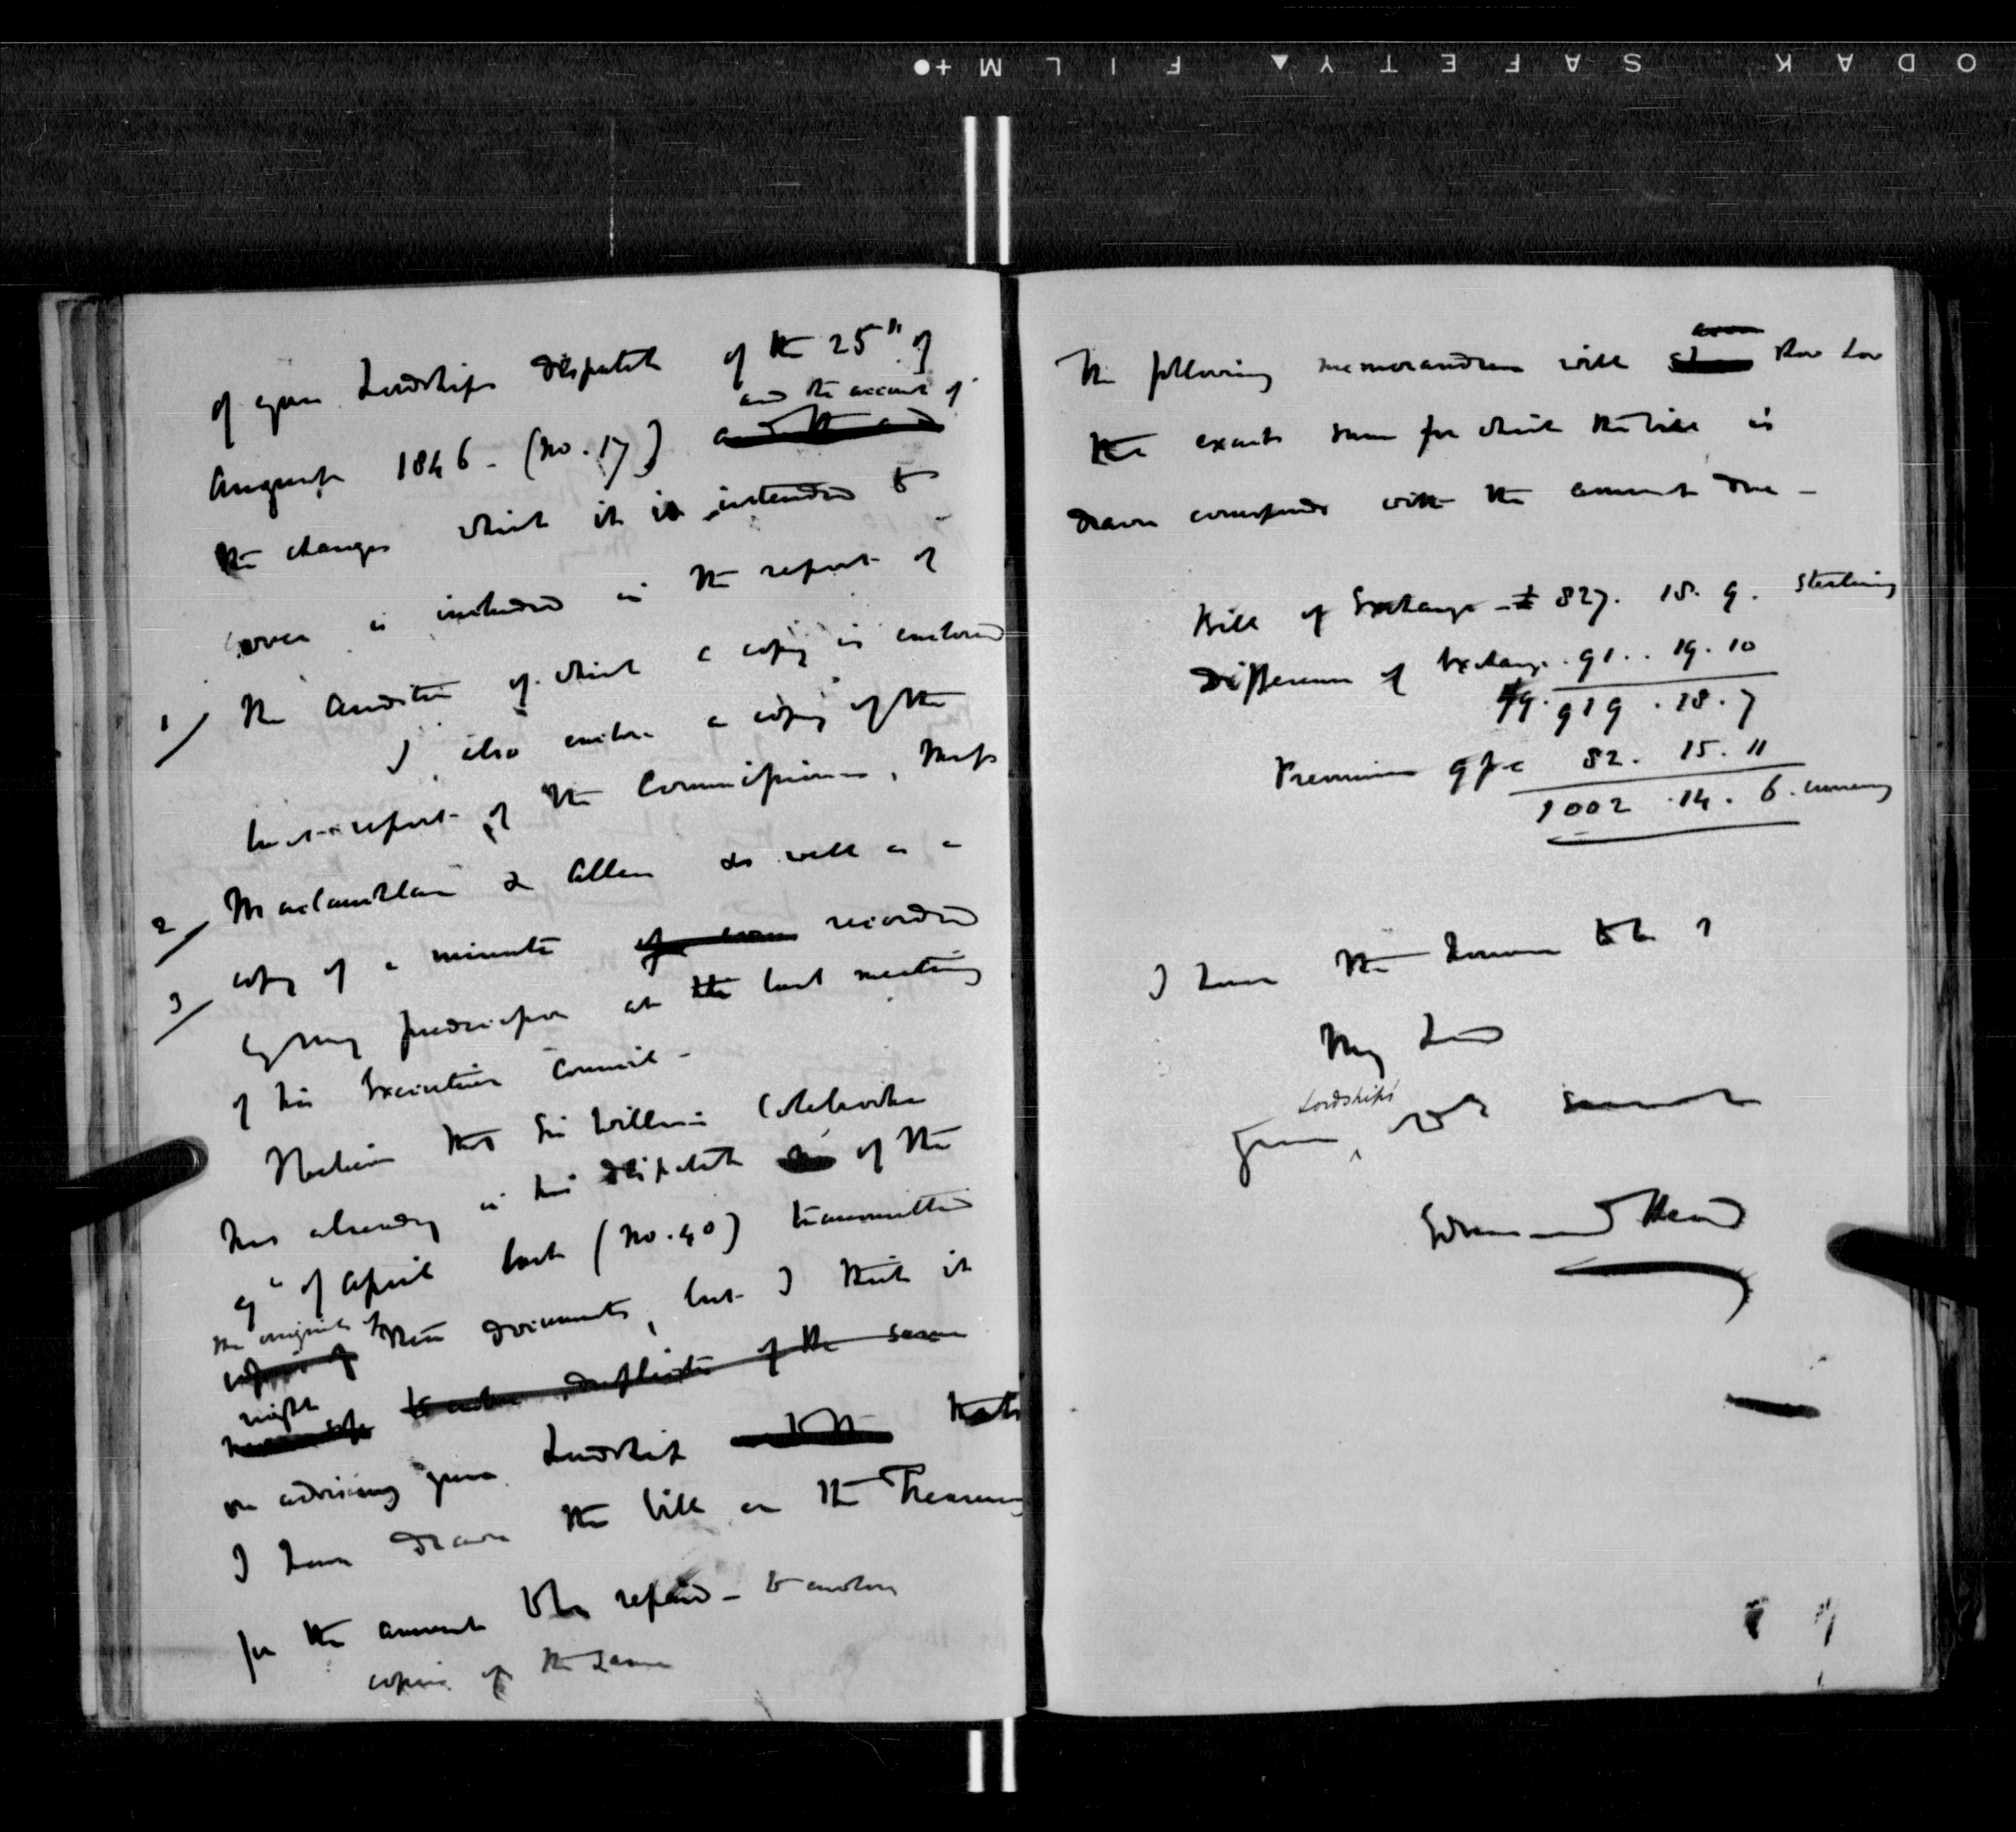 ODAK SAFETY▲ FILM+●
of your Lordships dispatch of the 25" of
and the account of
August 1846 - (No. 17)
the charges which it is intended to
cover is included in the report of
1/ the Auditor of which a copy is enclosed
I also enclose a copy of the
last report of the Commissioners, Messrs
2/ Maclauchlan & Allen as well as a
3/ copy of a minute of recorded
by my predecessor at the last meeting
of his Executive Council -
I believe that Sir William Colebrooke
has already in his dispatch of the
9" of April last (No. 40) transmitted
the originals of
copies of these documents, but I think it
right to enclose duplicates of the same
on advising your Lordship that
I have drawn the bill on the Treasury
for the amount to be repaid - to enclose
copies of the same
The following memorandum will show how
the exact sum for which the bill is
drawn corresponds with the amount due -
Bill of Exchange - £ 827. 18. 9. Sterling
Difference of Exchange . 91 . . 19. 10
919 . 18. 7
Premium 9 p c 82. 15. 11
1002 . 14. 6. currency
I have the honour to be
My Lord
Lordships'
Your servant
Edmund Head